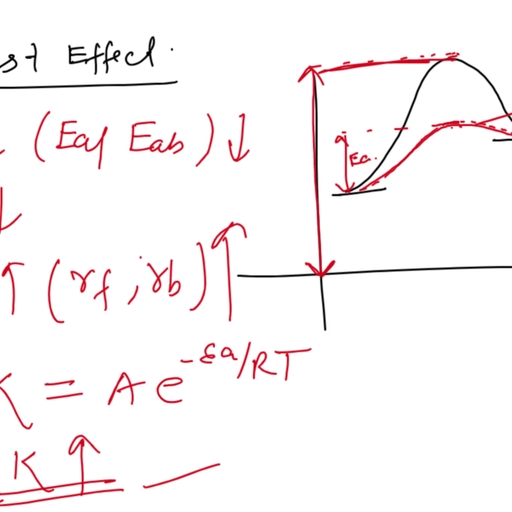 st Effect.
(Eaf Eab) ↓
↓
↑ (rf, rb) ↑
Ea.
K = A e^-Ea/RT
K ↑